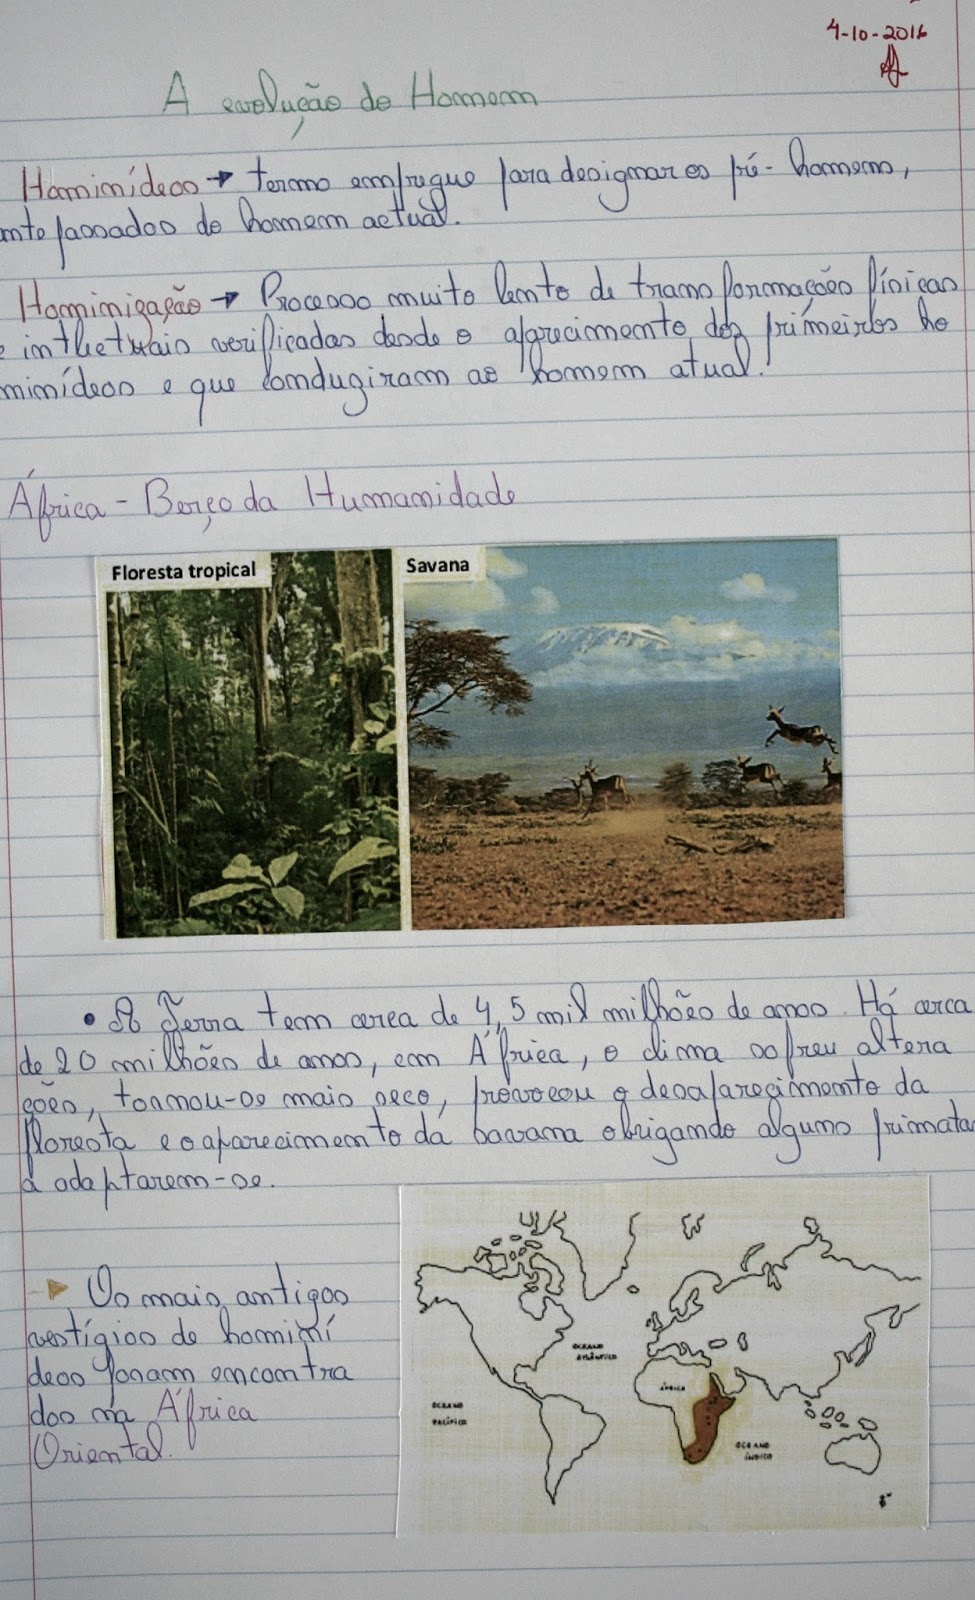 4-10-2016
A evolução do Homem
Hominídeos → termo empregue para designar os pré-homens,
antepassados do homem actual.
Hominização → Processo muito lento de transformações físicas
e intletuais verificadas desde o aparecimento dos primeiros ho
minídeos e que conduziram ao homem atual.
África - Berço da Humanidade
Floresta tropical
Savana
• A Terra tem cerca de 4,5 mil milhões de anos. Há cerca
de 20 milhões de anos, em África, o clima sofreu altera
ções, tornou-se mais seco, provocou o desaparecimento da
floresta e o aparecimento da savana obrigando alguns primatas
a adaptarem-se.
Os mais antigos
vestígios de hominí
deos foram encontra
dos na África
Oriental.
OCEANO
ATLÂNTICO
ÁFRICA
OCEANO
PACÍFICO
OCEANO
ÍNDICO